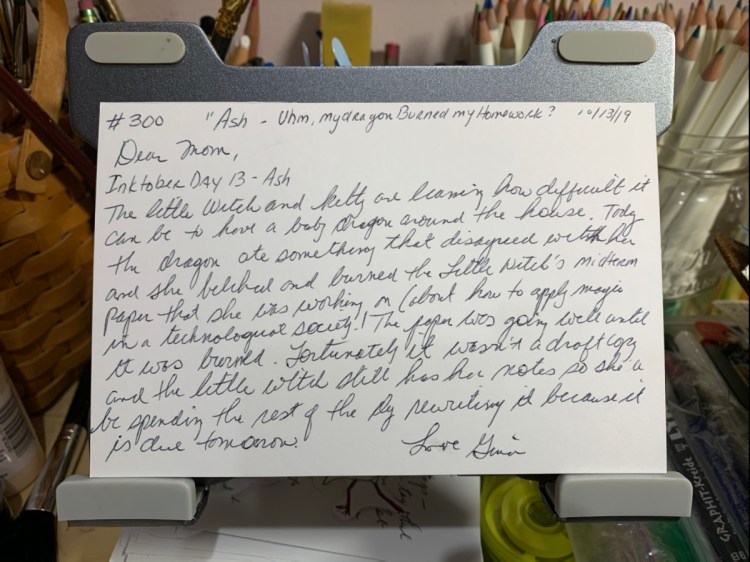 #300 "Ash - Uhm, my dragon Burned my Homework? 10/13/19
Dear Mom,
Inktober DAY 13 - Ash
The little Witch and Kitty are learning how difficult it
can be to have a baby dragon around the house. Today
the dragon ate something that disagreed with her
and she belched and burned the Little Witch's midterm
paper that she was working on (about how to apply magic
in a technological society! The paper was going well until
it was burned. Fortunately it wasn't a draft copy
and the little witch still has her notes so she'll
be spending the rest of the day rewriting it because it
is due tomorrow.
Love Gina
GRAPHIT-Kreide
9B